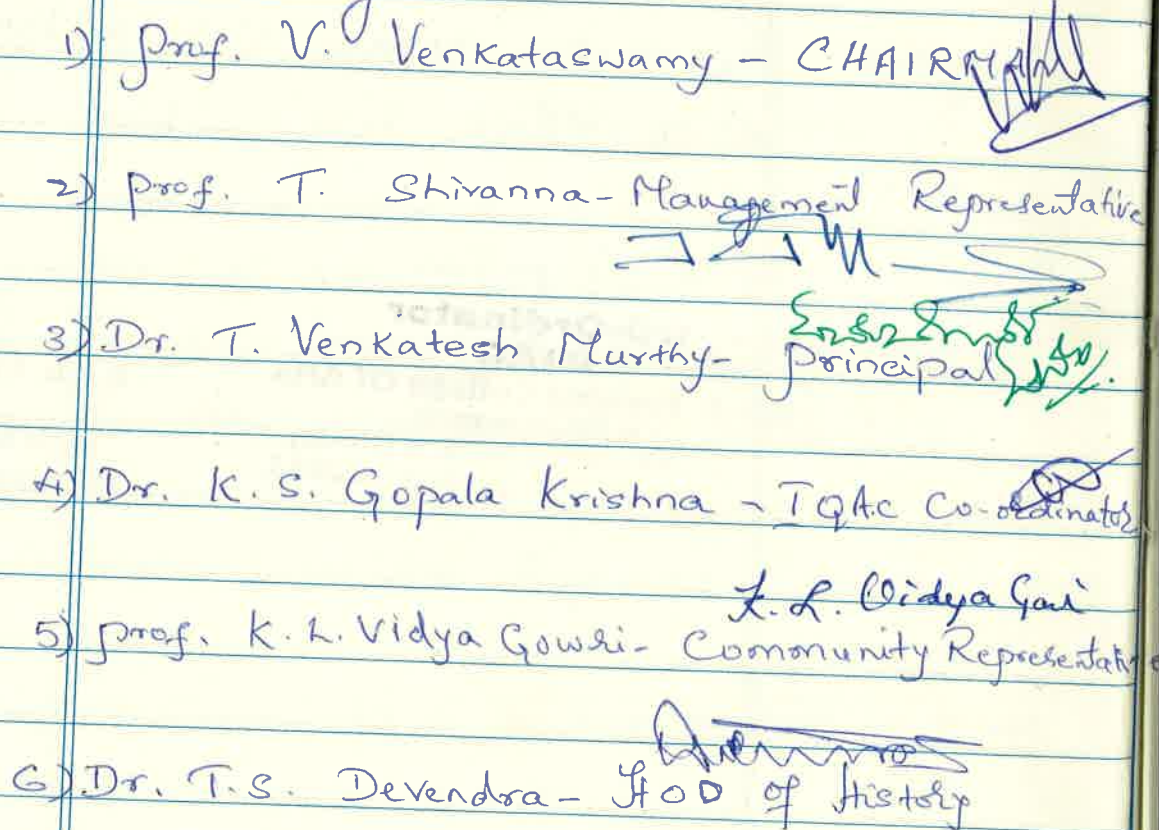 1) Prof. V. Venkataswamy - CHAIRMAN
2) Prof. T. Shivanna - Management Representative
3) Dr. T. Venkatesh Murthy - Principal
4) Dr. K. S. Gopala Krishna - IQAC Co-ordinator
K. L. Vidya Gowri
5) Prof. K. L. Vidya Gowri - Community Representative
6) Dr. T. S. Devendra - HOD of History